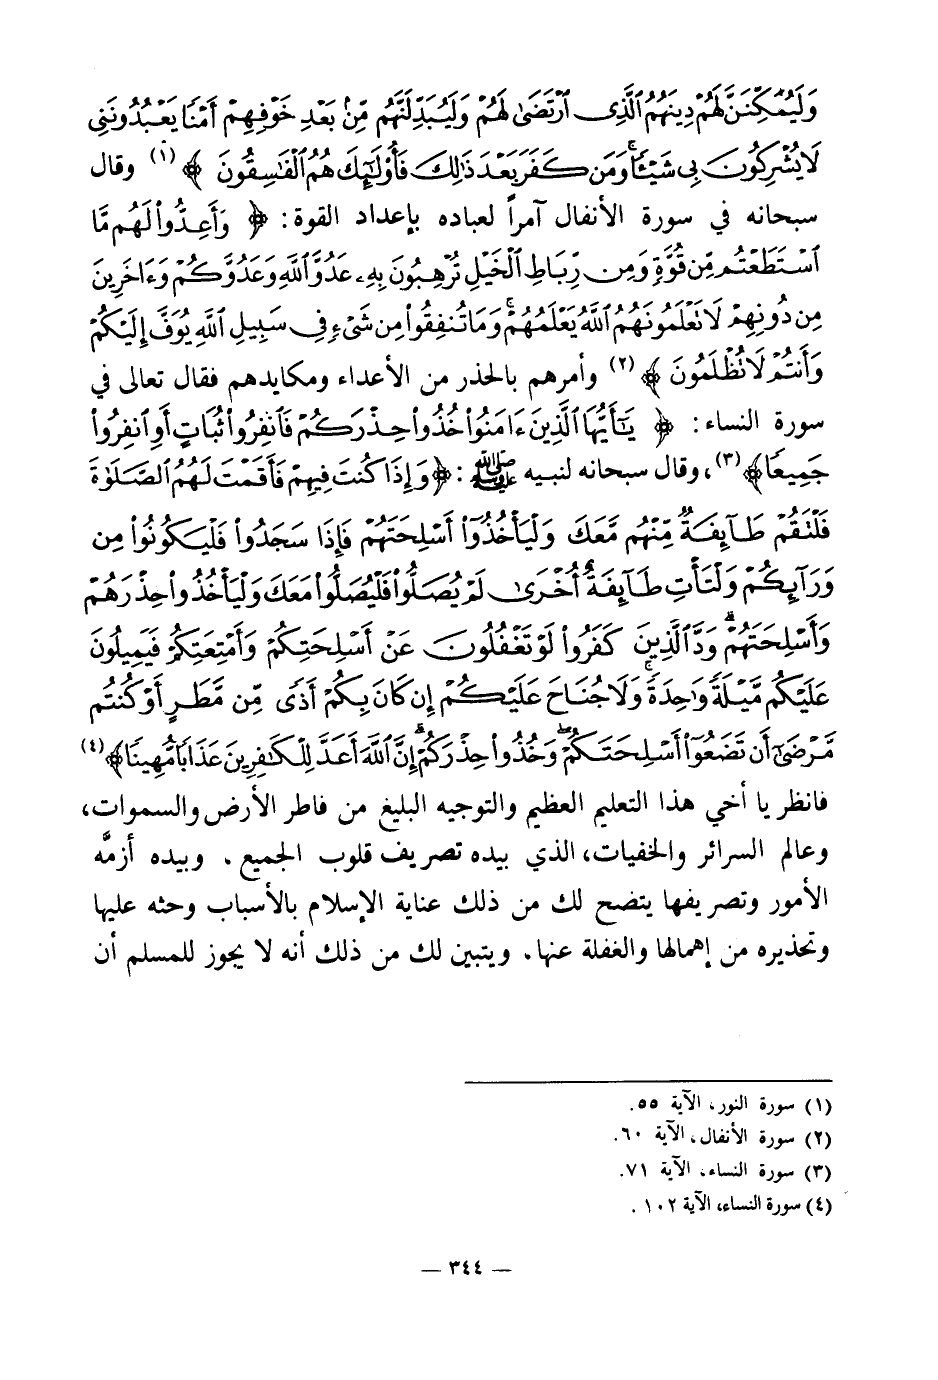 وَلَيُمَكِّنَنَّ لَهُمْ دِينَهُمُ ٱلَّذِى ٱرْتَضَىٰ لَهُمْ وَلَيُبَدِّلَنَّهُم مِّنۢ بَعْدِ خَوْفِهِمْ أَمْنًا يَعْبُدُونَنِى
لَا يُشْرِكُونَ بِى شَيْـًٔا وَمَن كَفَرَ بَعْدَ ذَٰلِكَ فَأُو۟لَٰٓئِكَ هُمُ ٱلْفَٰسِقُونَ ﴾ (١) وقال
سبحانه في سورة الأنفال آمراً لعباده بإعداد القوة: ﴿ وَأَعِدُّوا۟ لَهُم مَّا
ٱسْتَطَعْتُم مِّن قُوَّةٍ وَمِن رِّبَاطِ ٱلْخَيْلِ تُرْهِبُونَ بِهِۦ عَدُوَّ ٱللَّهِ وَعَدُوَّكُمْ وَءَاخَرِينَ
مِن دُونِهِمْ لَا تَعْلَمُونَهُمُ ٱللَّهُ يَعْلَمُهُمْ ۚ وَمَا تُنفِقُوا۟ مِن شَىْءٍ فِى سَبِيلِ ٱللَّهِ يُوَفَّ إِلَيْكُمْ
وَأَنتُمْ لَا تُظْلَمُونَ ﴾ (٢) وأمرهم بالحذر من الأعداء ومكايدهم فقال تعالى في
سورة النساء: ﴿ يَٰٓأَيُّهَا ٱلَّذِينَ ءَامَنُوا۟ خُذُوا۟ حِذْرَكُمْ فَٱنفِرُوا۟ ثُبَاتٍ أَوِ ٱنفِرُوا۟
جَمِيعًا﴾ (٣)، وقال سبحانه لنبيه ﷺ: ﴿وَإِذَا كُنتَ فِيهِمْ فَأَقَمْتَ لَهُمُ ٱلصَّلَوٰةَ
فَلْتَقُمْ طَآئِفَةٌ مِّنْهُم مَّعَكَ وَلْيَأْخُذُوٓا۟ أَسْلِحَتَهُمْ فَإِذَا سَجَدُوا۟ فَلْيَكُونُوا۟ مِن
وَرَآئِكُمْ وَلْتَأْتِ طَآئِفَةٌ أُخْرَىٰ لَمْ يُصَلُّوا۟ فَلْيُصَلُّوا۟ مَعَكَ وَلْيَأْخُذُوا۟ حِذْرَهُمْ
وَأَسْلِحَتَهُمْ ۗ وَدَّ ٱلَّذِينَ كَفَرُوا۟ لَوْ تَغْفُلُونَ عَنْ أَسْلِحَتِكُمْ وَأَمْتِعَتِكُمْ فَيَمِيلُونَ
عَلَيْكُم مَّيْلَةً وَٰحِدَةً ۚ وَلَا جُنَاحَ عَلَيْكُمْ إِن كَانَ بِكُمْ أَذًى مِّن مَّطَرٍ أَوْ كُنتُم
مَّرْضَىٰٓ أَن تَضَعُوٓا۟ أَسْلِحَتَكُمْ ۖ وَخُذُوا۟ حِذْرَكُمْ ۗ إِنَّ ٱللَّهَ أَعَدَّ لِلْكَٰفِرِينَ عَذَابًا مُّهِينًا﴾ (٤)
فانظر يا أخي هذا التعليم العظيم والتوجيه البليغ من فاطر الأرض والسموات،
وعالم السرائر والخفيات، الذي بيده تصريف قلوب الجميع. وبيده أزمَّه
الأمور وتصريفها يتضح لك من ذلك عناية الإسلام بالأسباب وحثه عليها
وتحذيره من إهمالها والغفلة عنها. ويتبين لك من ذلك أنه لا يجوز للمسلم أن
(١) سورة النور، الآية ٥٥.
(٢) سورة الأنفال، الآية ٦٠.
(٣) سورة النساء، الآية ٧١.
(٤) سورة النساء، الآية ١٠٢.
— ٣٤٤ —